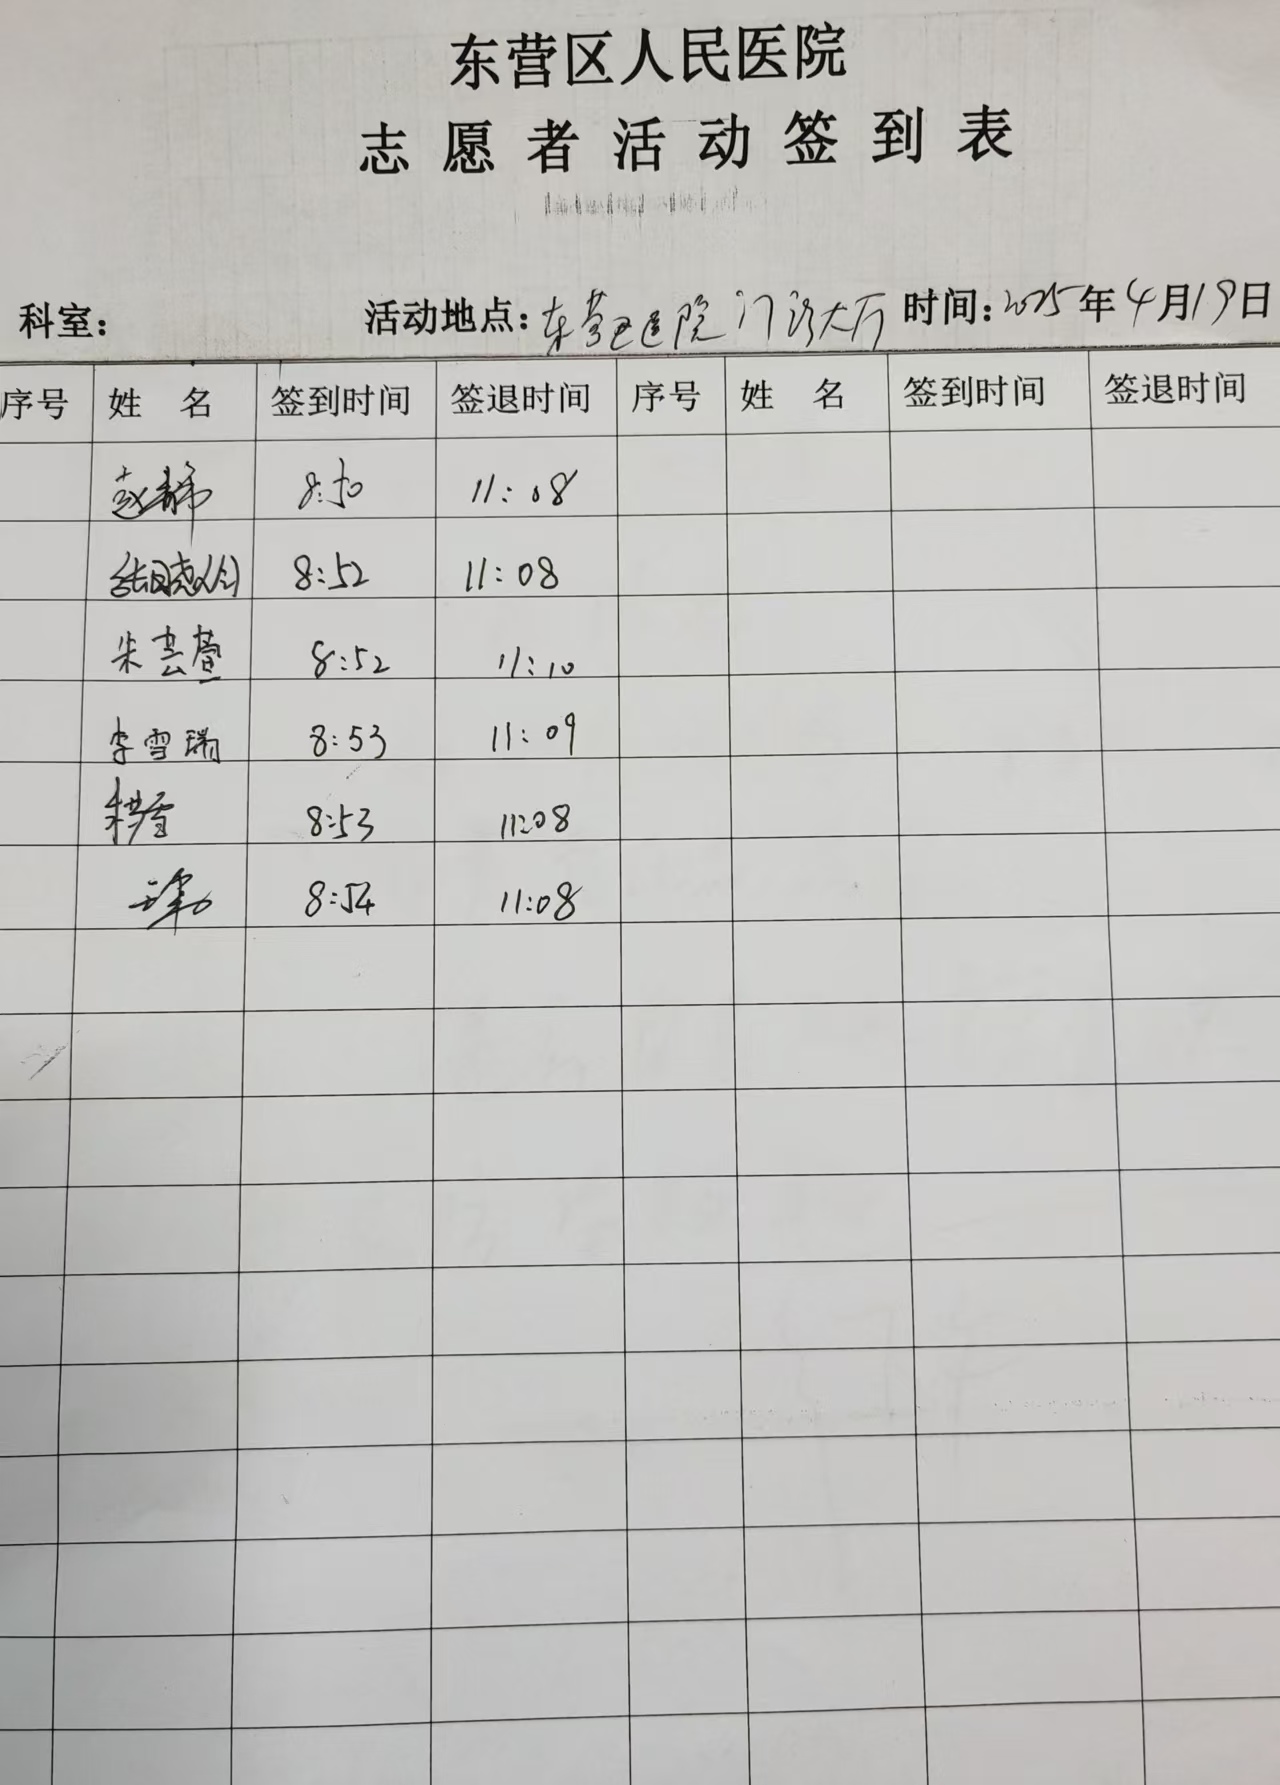 东营区人民医院
志愿者活动签到表
科室: 活动地点:东营区医院门诊大厅 时间:2025年4月19日
序号 姓名 签到时间 签退时间 序号 姓名 签到时间 签退时间
8:50 11:08
8:52 11:08
朱芸萱 8:52 11:10
李雪瑞 8:53 11:09
8:53 11:08
8:54 11:08